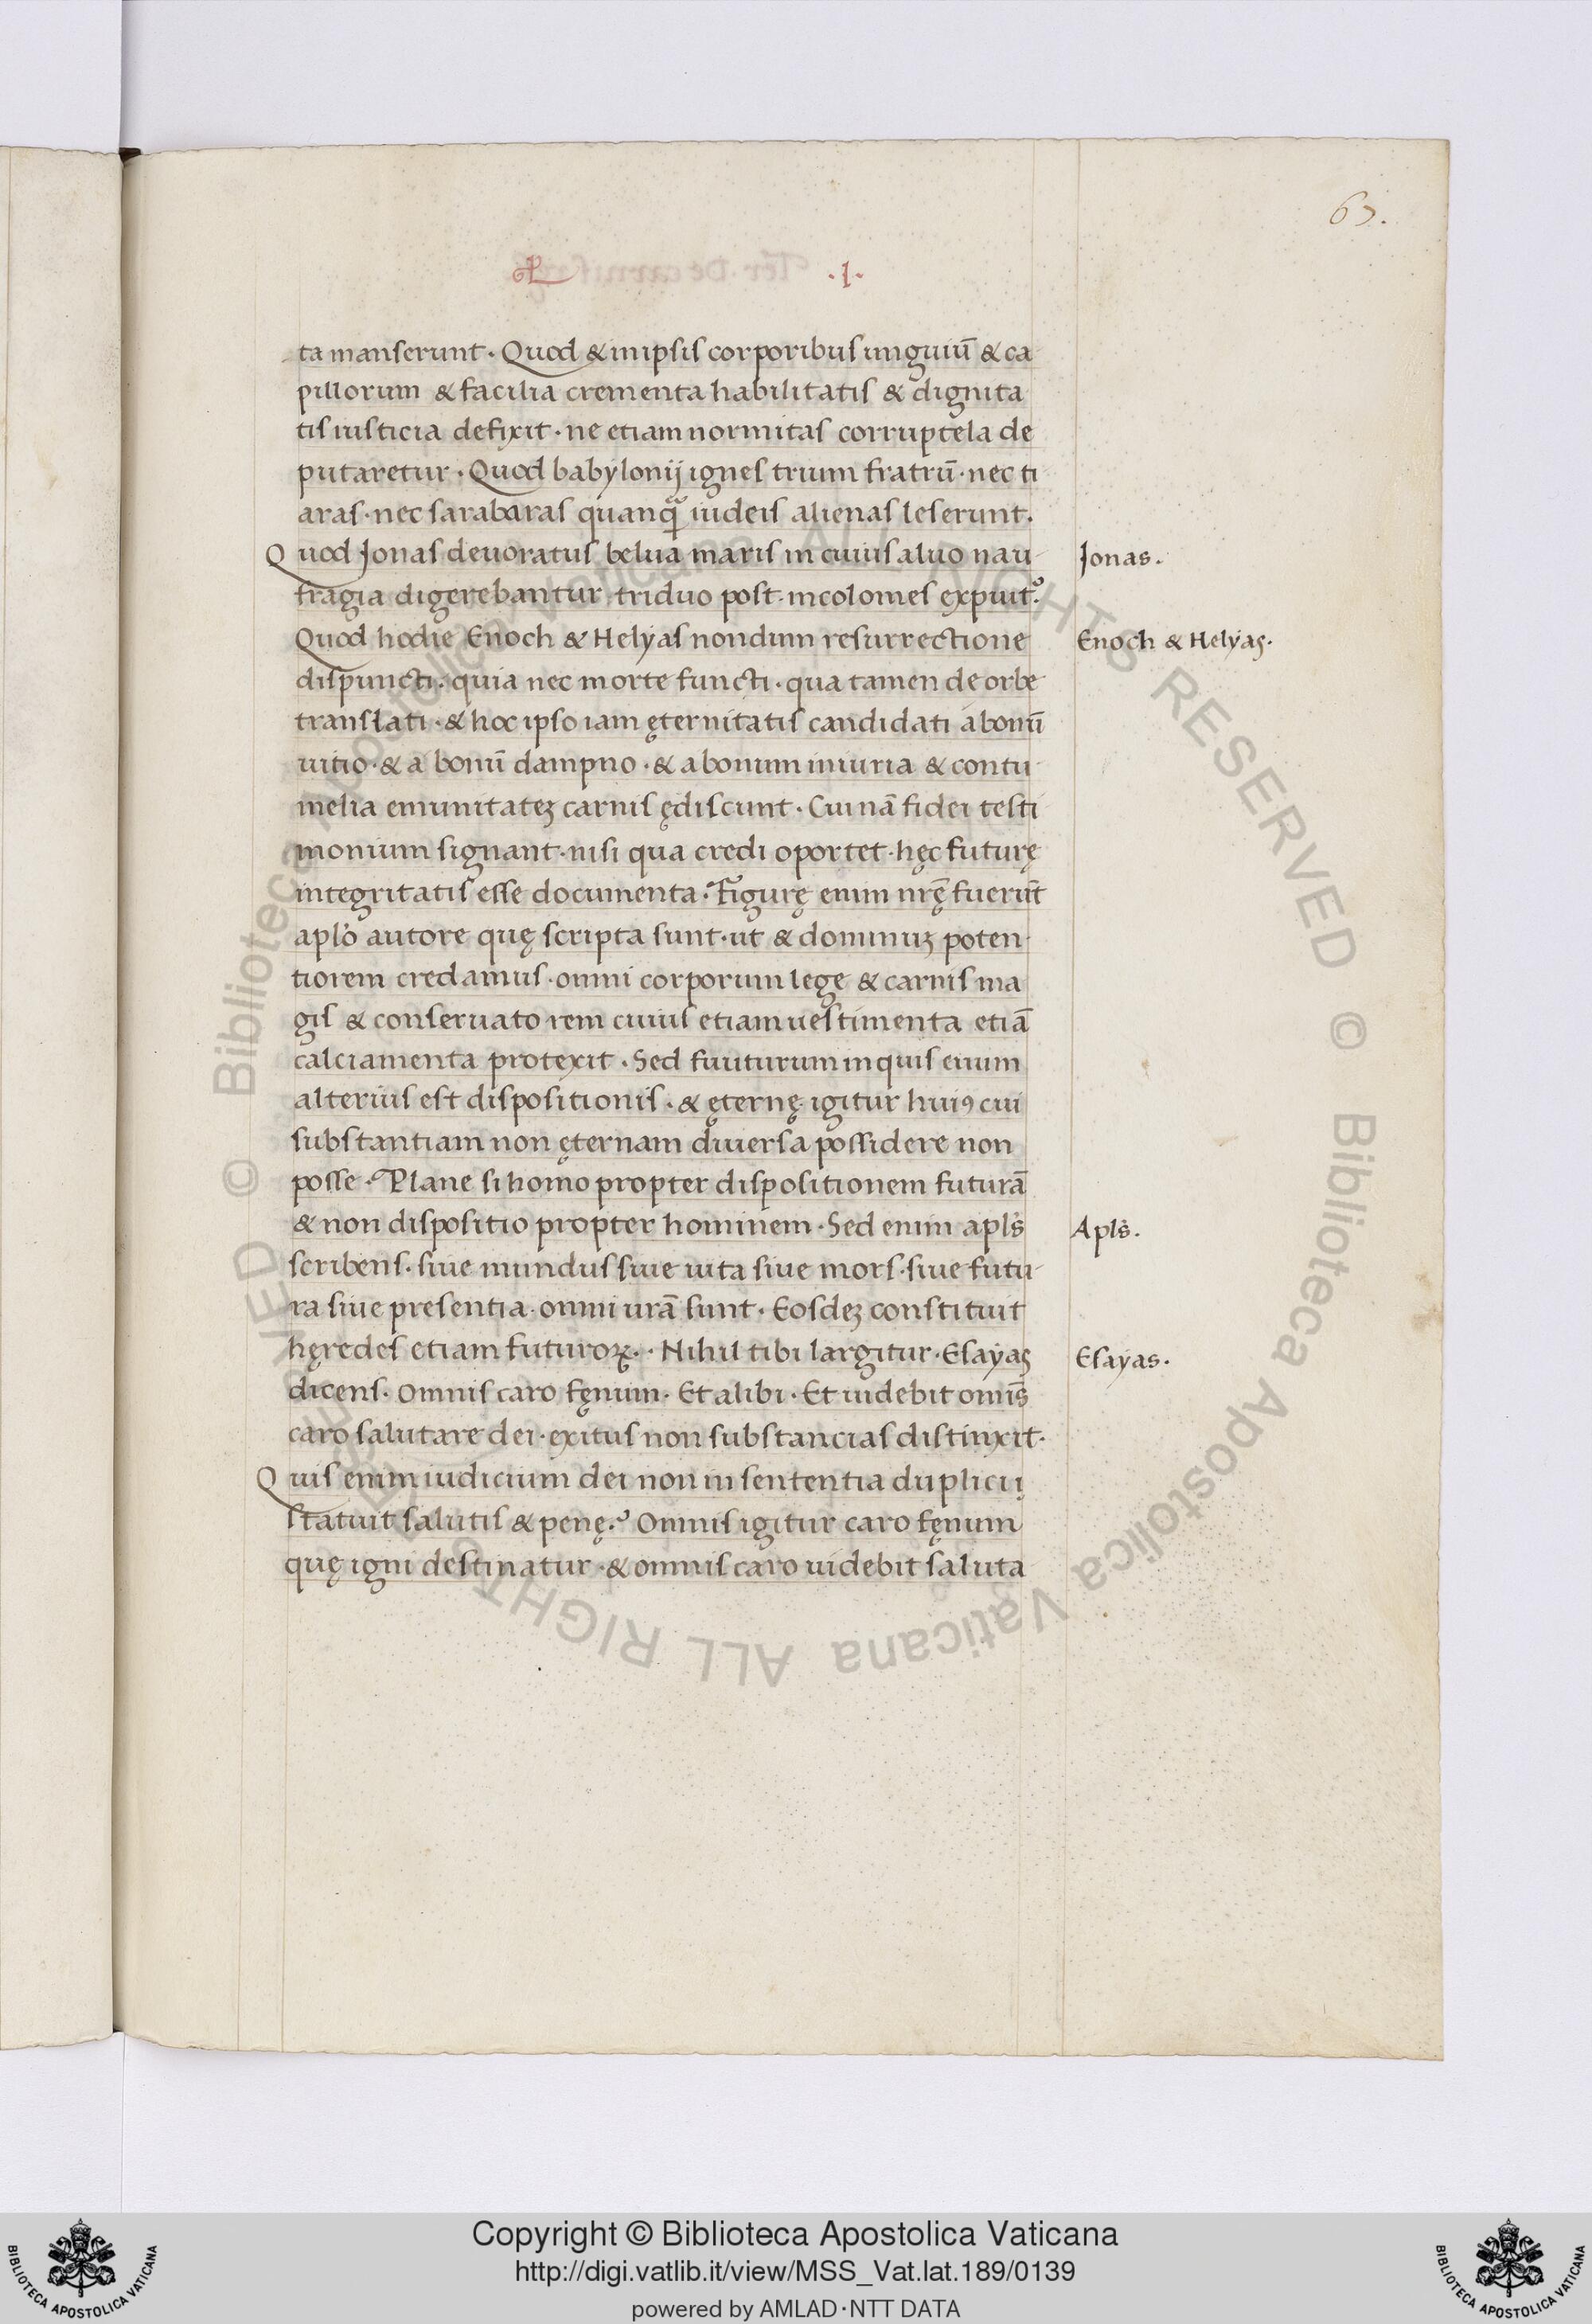 63.
L .I.
ta manserunt. Quod & in ipsis corporibus unguiū & ca
pillorum & facilia crementa habilitatis & dignita
tis iusticia defixit. ne etiam normitas corruptela de
putaretur. Quod babylonij ignes trium fratrū. nec ti
aras. nec sarabaras quanꝙ̃ iudeis alienas leserunt.
Quod Jonas deuoratus belua maris in cuius aluo nau-
Jonas.
fragia digerebantur triduo post incolomes expuit.
Quod hodie Enoch & Helyas nondum resurrectione
Enoch & Helyas.
dispuncti. quia nec morte functi. qua tamen de orbe
translati. & hoc ipso iam ęternitatis candidati a bonū
uitio. & a bonū dampno. & a bonum iniuria & contu-
melia emunitateꝫ carnis ędiscunt. Cui nā fidei testi
monium signant. nisi qua credi oportet. hęc futurę
integritatis esse documenta. Figurę enim nr̄ę fuerūt
apl̓o autore quę scripta sunt. ut & dominuꝫ poten-
tiorem credamus. omni corporum lege & carnis ma
gis & conseruato rem cuius etiam uestimenta etiā
calciamenta protexit. Sed fuuturum inquis euum
alterius est dispositionis. & ęternę. igitur huiꝯ cui
substantiam non ęternam diuersa possidere non
posse. Plane si homo propter dispositionem futurā
& non dispositio propter hominem. Sed enim apl̓s
Apl̓s.
scribens. siue mundus siue uita siue mors. siue futu-
ra siue presentia. omni urā sunt. Eosdeꝫ constituit
hęredes etiam futuroꝝ. . Nihil tibi largitur. Esayas
Esayas.
dicens. Omnis caro fęnum. Et alibi. Et uidebit omīs
caro salutare dei. exitus non substancias distinxit.
Quis enim iudicium dei non in sententia duplicii
statuit salutis & penę. Omnis igitur caro fęnum
quę igni destinatur. & omnis caro uidebit saluta
Copyright © Biblioteca Apostolica Vaticana
http://digi.vatlib.it/view/MSS_Vat.lat.189/0139
powered by AMLAD · NTT DATA
BIBLIOTECA APOSTOLICA VATICANA
BIBLIOTECA APOSTOLICA VATICANA
© Biblioteca Apostolica Vaticana ALL RIGHTS RESERVED © Biblioteca Apostolica Vaticana ALL RIGHTS RESERVED